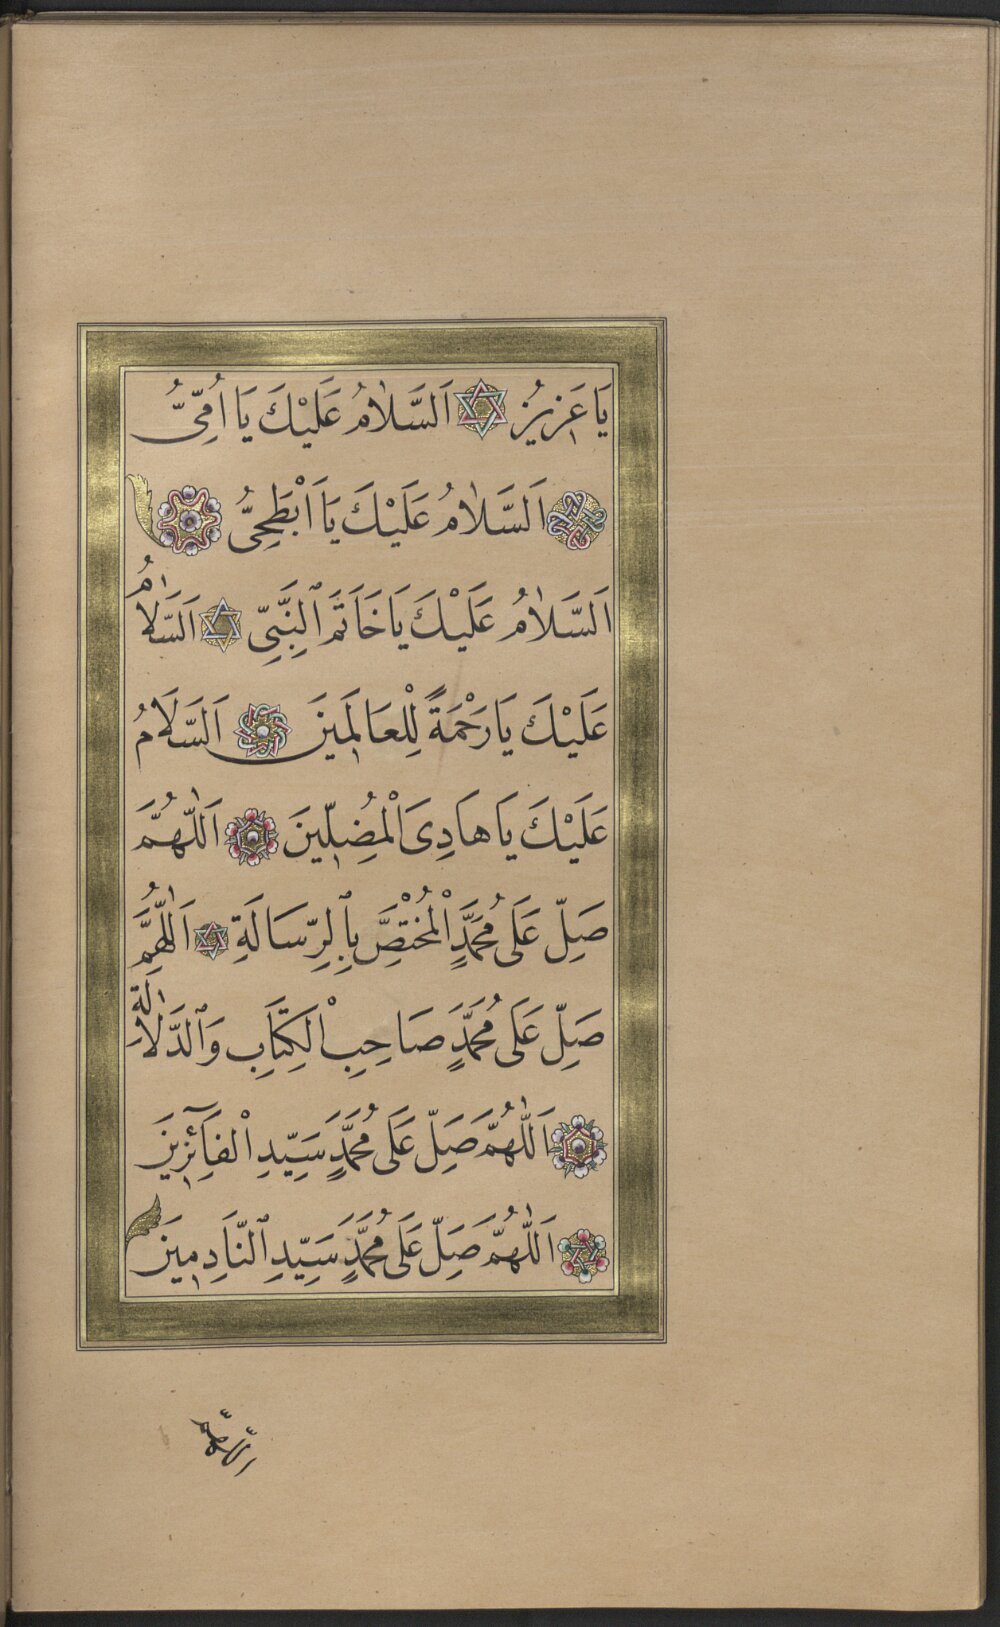 يَا عَزِيزُ اَلسَّلَامُ عَلَيْكَ يَا اُمِّىُّ
اَلسَّلَامُ عَلَيْكَ يَا اَبْطَحِىُّ
اَلسَّلَامُ عَلَيْكَ يَا خَاتَمَ ٱلنَّبِىِّ اَلسَّلَامُ
عَلَيْكَ يَا رَحْمَةً لِلْعَالَمِينَ اَلسَّلَامُ
عَلَيْكَ يَا هَادِىَ الْمُضِلِّينَ اَللّٰهُمَّ
صَلِّ عَلَى مُحَمَّدٍ الْمُخْتَصِّ بِٱلرِّسَالَةِ اَللّٰهُمَّ
صَلِّ عَلَى مُحَمَّدٍ صَاحِبِ الْكِتَابِ وَٱلدَّلَالَةِ
اَللّٰهُمَّ صَلِّ عَلَى مُحَمَّدٍ سَيِّدِ الْفَآئِزِينَ
اَللّٰهُمَّ صَلِّ عَلَى مُحَمَّدٍ سَيِّدِ ٱلنَّادِمِينَ
اللهم